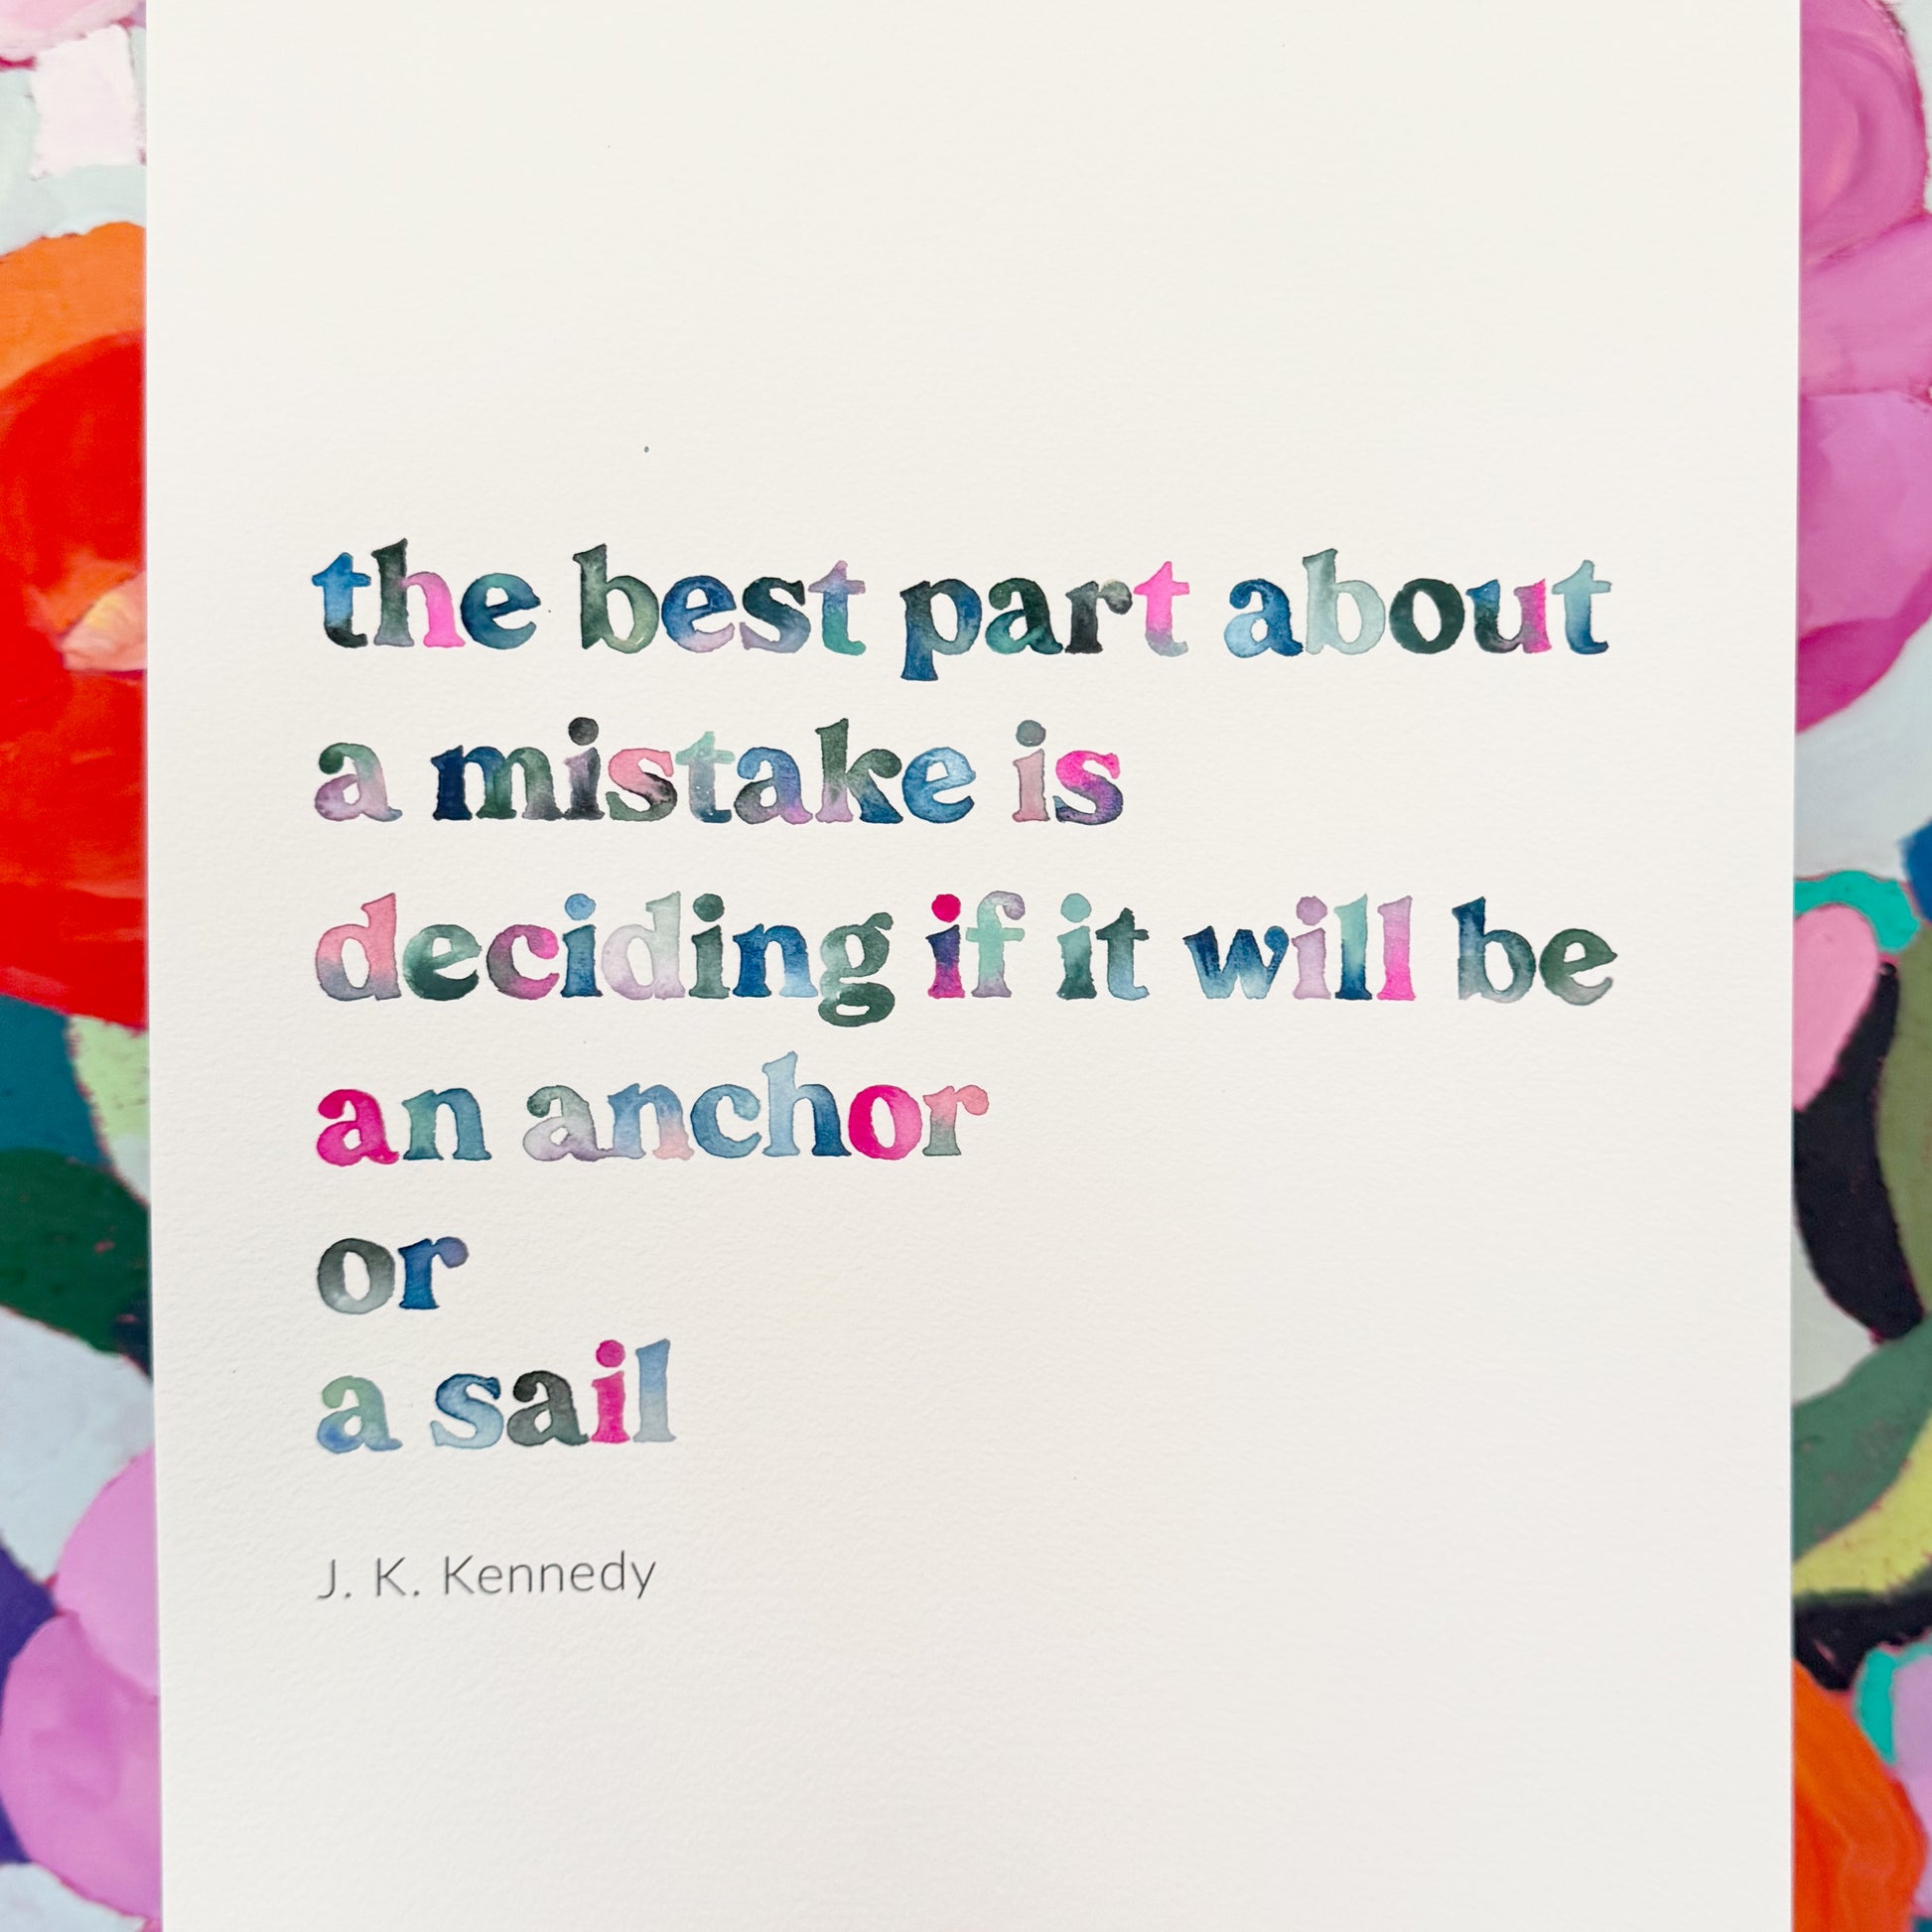 the best part about
a mistake is
deciding if it will be
an anchor
or
a sail
J. K. Kennedy